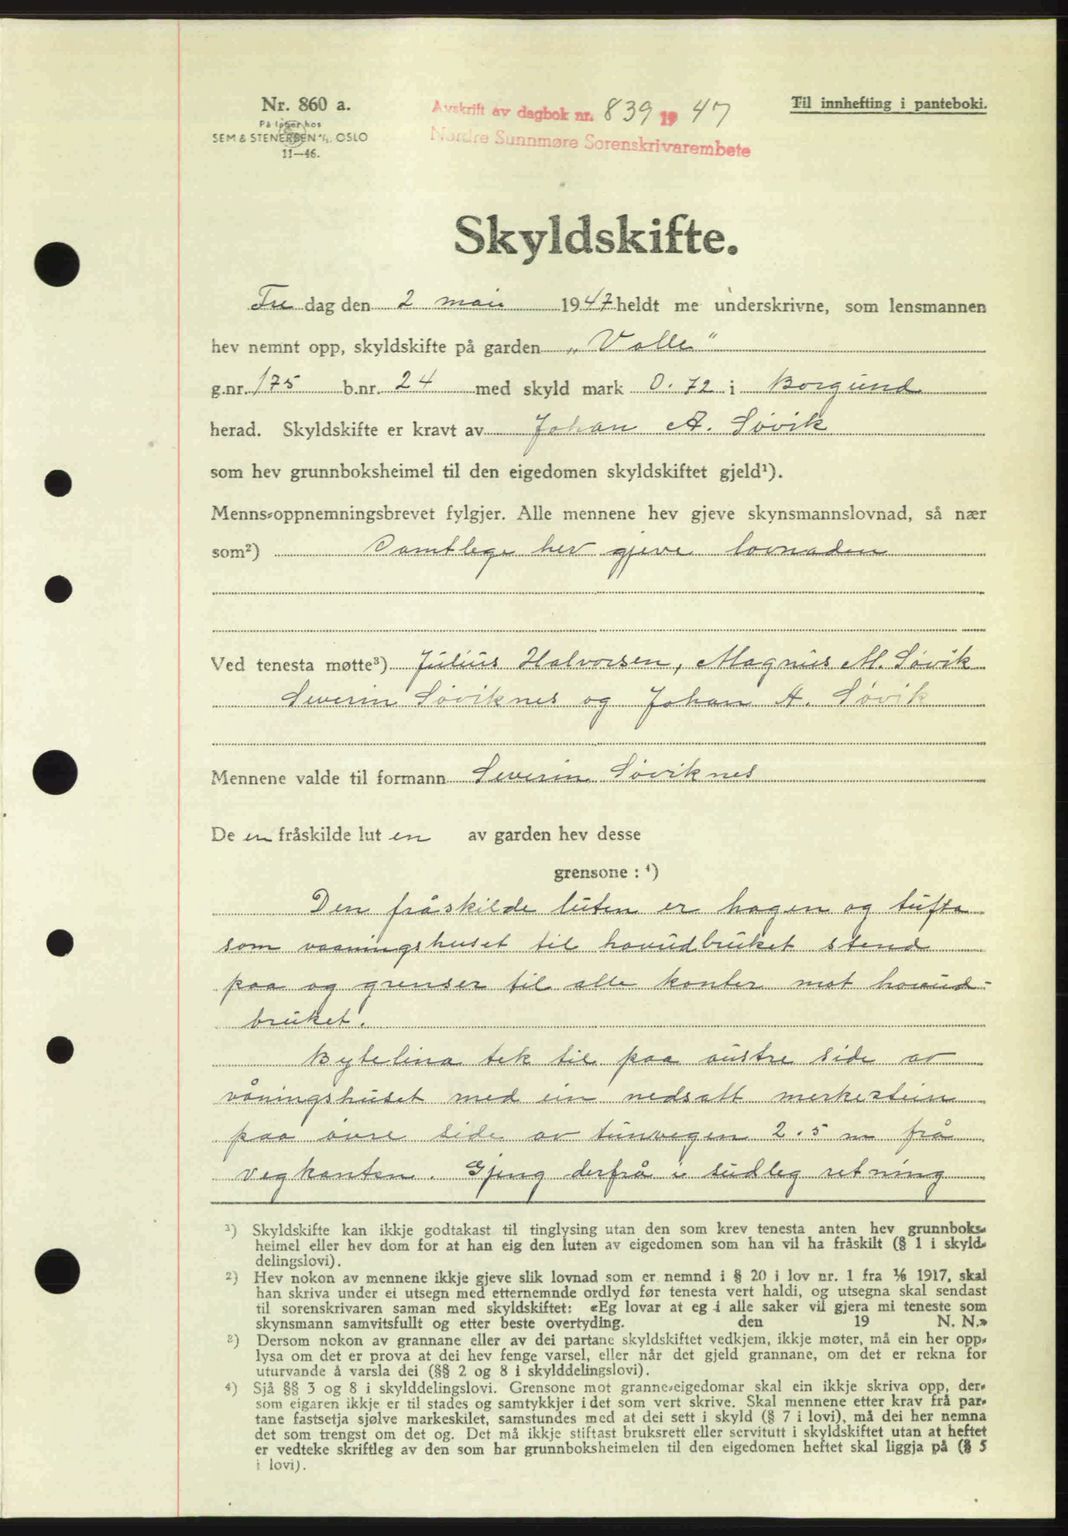 Nr. 860 a.
På lager hos
SEM & STENERSEN A/S, OSLO
11—46.
Avskrift av dagbok nr. 839 1947
Nordre Sunnmøre Sorenskrivarembete
Til innhefting i panteboki.
Skyldskifte.
Fre dag den 2 mai 1947 heldt me underskrivne, som lensmannen
hev nemnt opp, skyldskifte på garden „Valle"
g.nr. 175 b.nr. 24 med skyld mark 0.72 i Borgund
herad. Skyldskifte er kravt av Johan A. Søvik
som hev grunnboksheimel til den eigedomen skyldskiftet gjeld¹).
Menns-oppnemningsbrevet fylgjer. Alle mennene hev gjeve skynsmannslovnad, så nær
som²) Samtlege hev gjeve lovnaden
Ved tenesta møtte³) Julius Halvorsen, Magnus M. Søvik
Severin Søviknes og Johan A. Søvik
Mennene valde til formann Severin Søviknes
De en fråskilde lut en av garden hev desse
grensone: ⁴)
Den fråskilde luten er hagen og tufta
som vaaningshuset til hovudbruket stend
paa og grenser til alle kanter mot hovud-
bruket.
Bytelina tek til paa austre side av
våningshuset med ein nedsatt merkestein
paa øvre side av tunvegen 2.5 m frå
vegkanten. Gjeng derfrå i sudleg retning
¹) Skyldskifte kan ikkje godtakast til tinglysing utan den som krev tenesta anten hev grunnboks-
heimel eller hev dom for at han eig den luten av eigedomen som han vil ha fråskilt (§ 1 i skyld-
delingslovi).
²) Hev nokon av mennene ikkje gjeve slik lovnad som er nemnd i § 20 i lov nr. 1 fra 1/6 1917, skal
han skriva under ei utsegn med etternemnde ordlyd før tenesta vert haldi, og utsegna skal sendast
til sorenskrivaren saman med skyldskiftet: «Eg lovar at eg i alle saker vil gjera mi teneste som
skynsmann samvitsfullt og etter beste overtyding. den 19 N. N.»
³) Dersom nokon av grannane eller av dei partane skyldskiftet vedkjem, ikkje møter, må ein her opp-
lysa om det er prova at dei hev fenge varsel, eller når det gjeld grannane, om det er rekna for
uturvande å varsla dei (§§ 2 og 8 i skylddelingslovi).
⁴) Sjå §§ 3 og 8 i skylddelingslovi. Grensone mot granne-eigedomar skal ein ikkje skriva opp, der-
som eigaren ikkje er til stades og samtykkjer i det som vert skrive. Skal mennene etter krav frå par-
tane fastsetja sjølve markeskilet, samstundes med at dei sett i skyld (§ 7 i lovi), må dei her nemna
det som trengst om det og. Det må ikkje stiftast bruksrett eller servitutt i skyldskiftet utan at heftet
er vedteke skriftleg av den som har grunnboksheimelen til den eigedomen heftet skal liggja på (§ 5
i lovi).